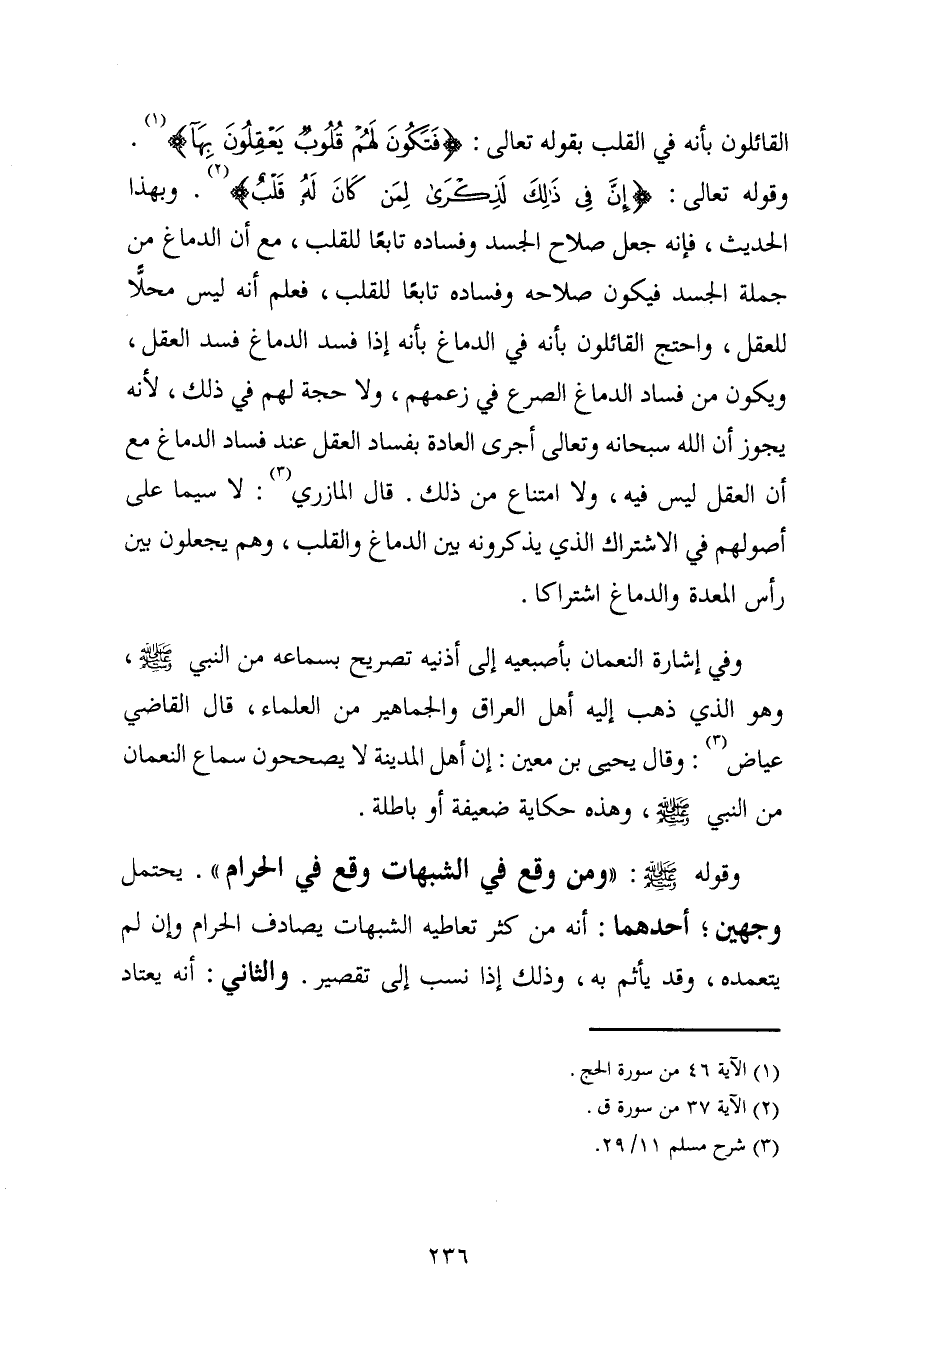 القائلون بأنه في القلب بقوله تعالى : ﴿فَتَكُونَ لَهُمْ قُلُوبٌ يَعْقِلُونَ بِهَآ﴾(١) .
وقوله تعالى : ﴿إِنَّ فِى ذَٰلِكَ لَذِكْرَىٰ لِمَن كَانَ لَهُۥ قَلْبٌ﴾(٢) . وبهذا
الحديث ، فإنه جعل صلاح الجسد وفساده تابعًا للقلب ، مع أن الدماغ من
جملة الجسد فيكون صلاحه وفساده تابعًا للقلب ، فعلم أنه ليس محلًّا
للعقل ، واحتج القائلون بأنه في الدماغ بأنه إذا فسد الدماغ فسد العقل ،
ويكون من فساد الدماغ الصرع في زعمهم ، ولا حجة لهم في ذلك ، لأنه
يجوز أن الله سبحانه وتعالى أجرى العادة بفساد العقل عند فساد الدماغ مع
أن العقل ليس فيه ، ولا امتناع من ذلك . قال المازري(٣) : لا سيما على
أصولهم في الاشتراك الذي يذكرونه بين الدماغ والقلب ، وهم يجعلون بين
رأس المعدة والدماغ اشتراكا .
وفي إشارة النعمان بأصبعيه إلى أذنيه تصريح بسماعه من النبي ﷺ ،
وهو الذي ذهب إليه أهل العراق والجماهير من العلماء ، قال القاضي
عياض(٣) : وقال يحيى بن معين : إن أهل المدينة لا يصححون سماع النعمان
من النبي ﷺ ، وهذه حكاية ضعيفة أو باطلة .
وقوله ﷺ : «ومن وقع في الشبهات وقع في الحرام» . يحتمل
وجهين ؛ أحدهما : أنه من كثر تعاطيه الشبهات يصادف الحرام وإن لم
يتعمده ، وقد يأثم به ، وذلك إذا نسب إلى تقصير . والثاني : أنه يعتاد
(١) الآية ٤٦ من سورة الحج .
(٢) الآية ٣٧ من سورة ق .
(٣) شرح مسلم ١١/ ٢٩.
٢٣٦